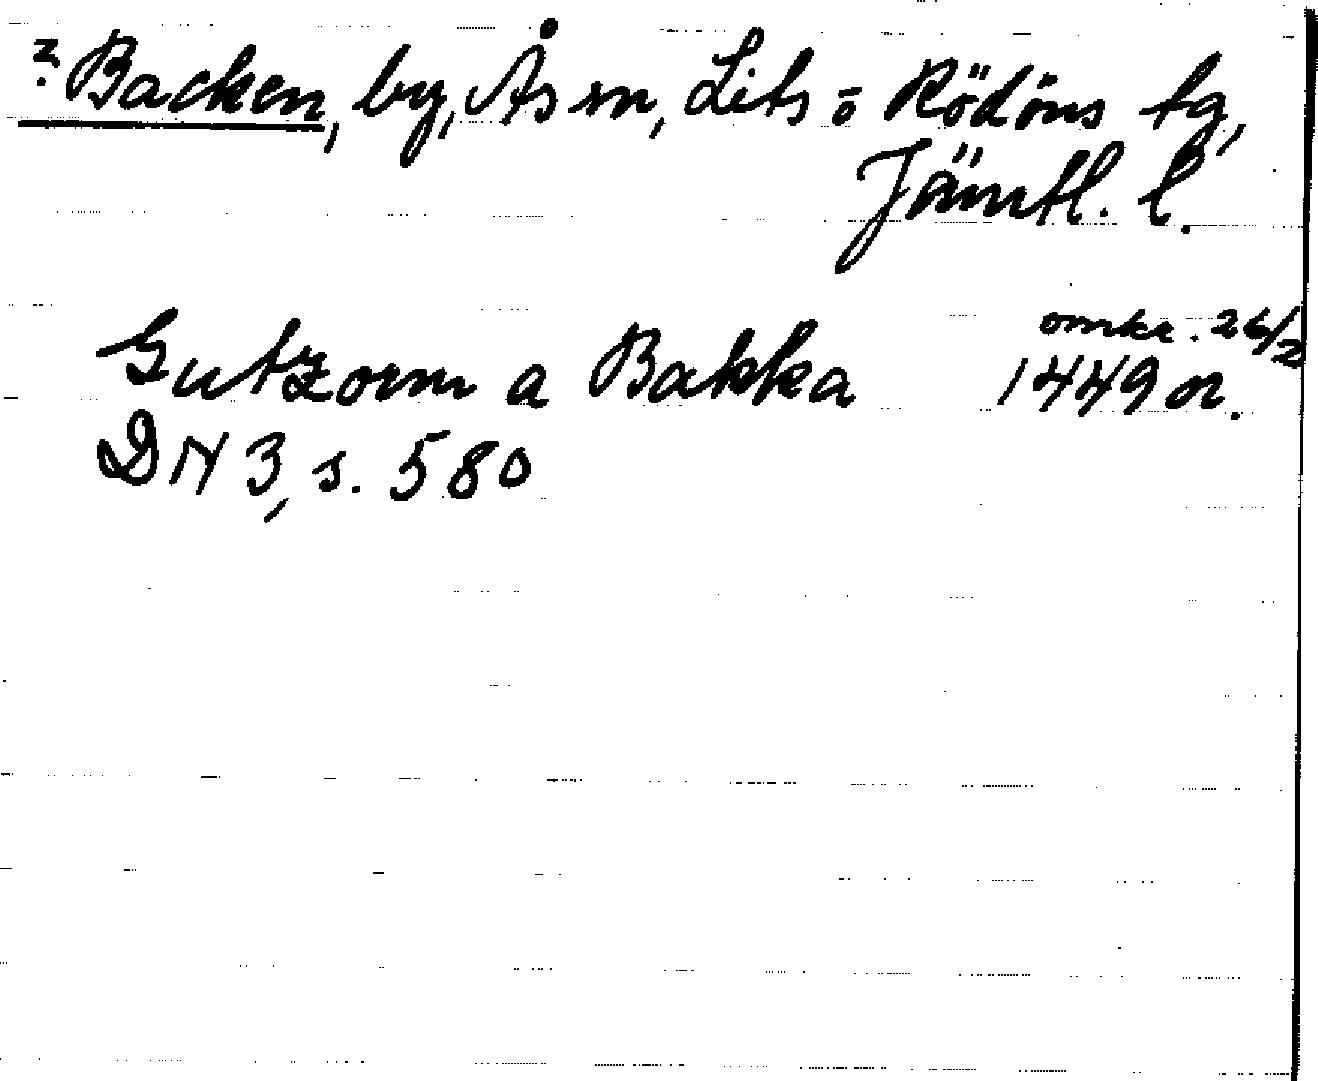 ? Backen, by, Ås sn, Lits o Rödöns tg,
Jämtl. l.
Gutzorm a Bakka omkr. 26/2
1449 or.
DN 3, s. 580